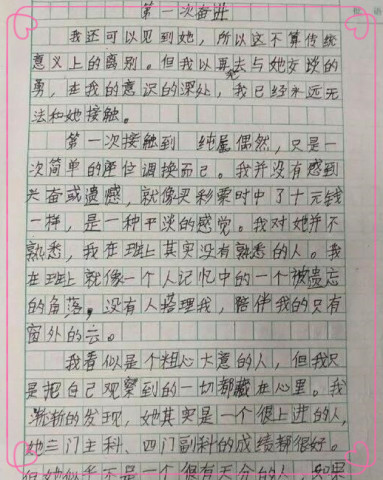 第一次奋进
我还可以见到她，所以这不算传统
意义上的离别。但我以再无去与她交谈的
勇，在我的意识的深处，我已经永远无
法和她接触。
第一次接触到 纯属偶然，只是一
次简单的座位调换而已。我并没有感到
兴奋或遗憾，就像买彩票时中了十元钱
一样，是一种平淡的感觉。我对她并不
熟悉，我在班上其实没有熟悉的人。我
在班上就像一个人记忆中的一个被遗忘
的角落，没有人搭理我，陪伴我的只有
窗外的云。
我看似是个粗心大意的人，但我只
是把自己观察到的一切都藏在心里。我
渐渐的发现，她其实是一个很上进的人，
她三门主科、四门副科的成绩都很好。
但她似乎不是一个很有天分的人，如果